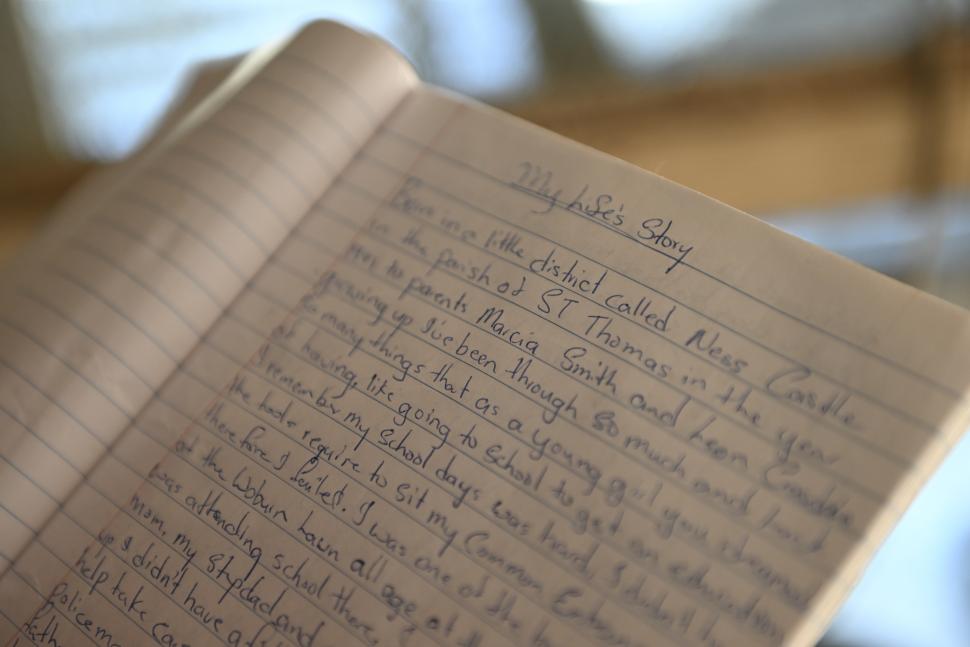 My Life's Story
Born in a little district called Ness Castle
in the parish of ST Thomas in the year
to parents Marcia Smith and Leon
growing up I've been through so much and
So many things that as a young girl you
of having, like going to School to get an education
I remember my School days was hard, I didn't
the books require to sit my Common
therefore I failed. I was one of the
at the Woburn Lawn all age
was attending school there,
mom, my Stepdad and
up I didn't have a
help take
Police